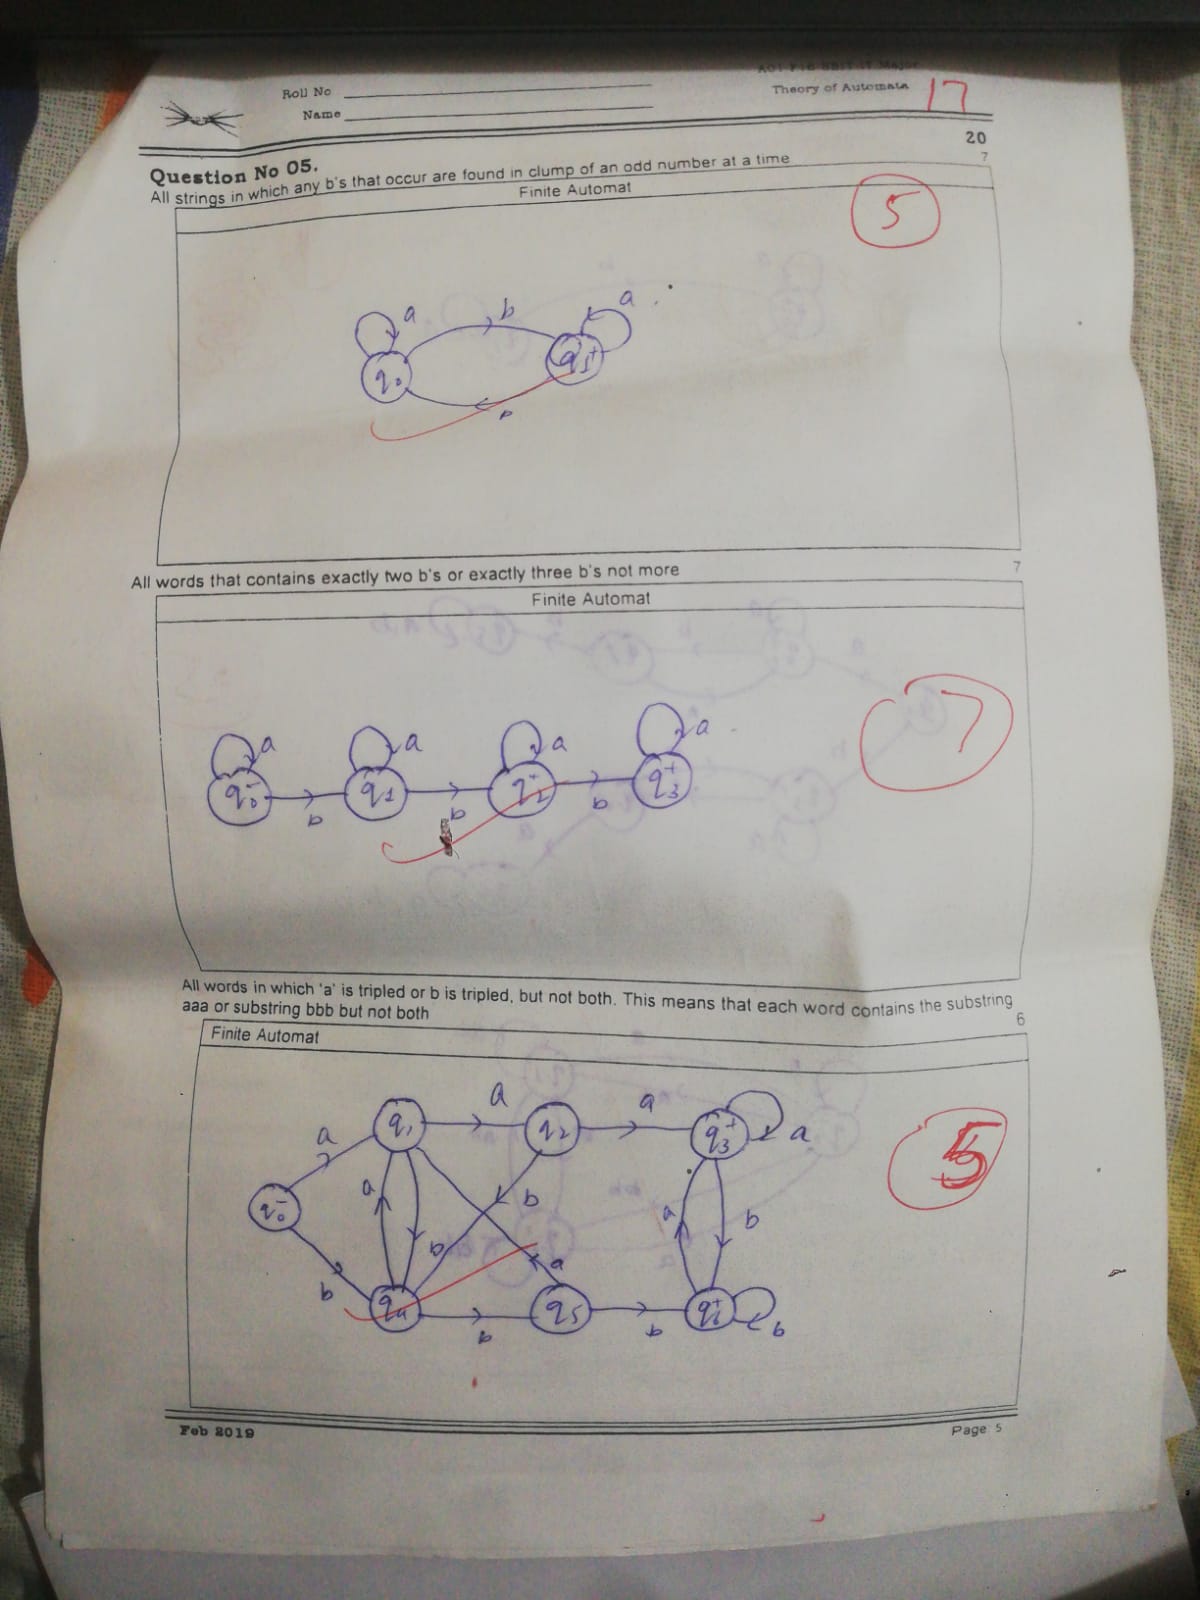 Roll No
Theory of Automata
17
Name
20
Question No 05.
7
All strings in which any b's that occur are found in clump of an odd number at a time
Finite Automat
5
a
b
a
q0
q1+
b
All words that contains exactly two b's or exactly three b's not more
7
Finite Automat
7
a
a
a
a
q0-
q1
q2+
q3+
b
b
b
All words in which 'a' is tripled or b is tripled, but not both. This means that each word contains the substring
aaa or substring bbb but not both
6
Finite Automat
a
a
a
q1
q2
q3+
a
5
q0-
a
b
b
a
b
b
a
q4
q5
q6+
b
b
b
Feb 2019
Page 5